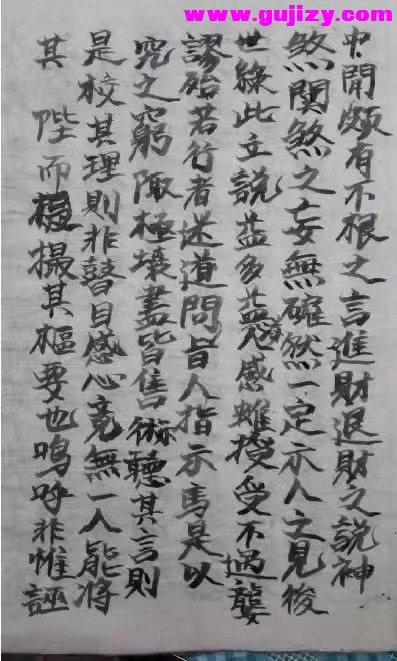 www.gujizy.com
中間頗有不根之言進財退財之說神
煞関煞之妄無確然一定示人之見後
世緣此立說益多益惑感雖授受不過襲
謬殆若行者迷道問盲人指示馬是以
究之窮陬極壤盡皆售術聽其言則
是校其理則非瞽目感心竟無一人能將
其陛而撮其樞要也嗚呼非惟誣